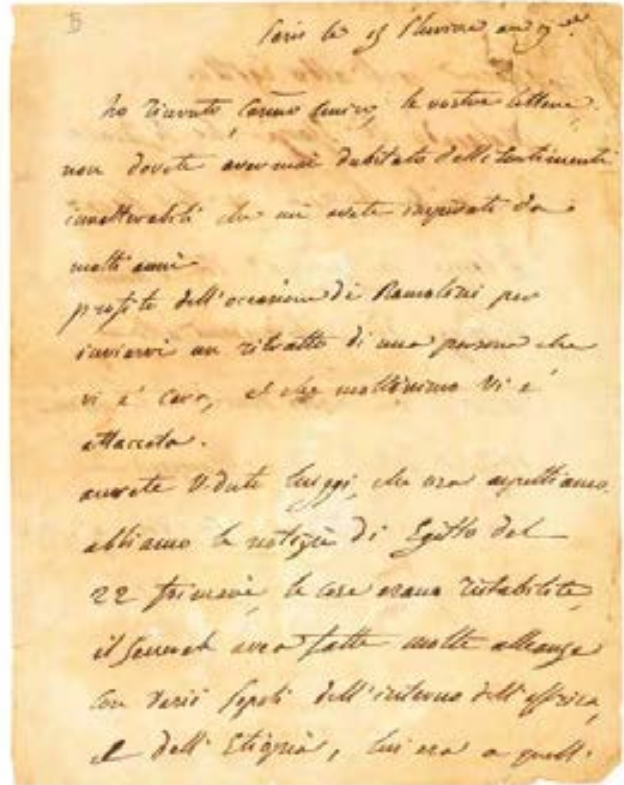 Paris le 15 Pluviose an 9
ho ricevuto, carmo amico, le vostre lettere.
non dovete aver mai dubitato delli sentimenti
inalterabili che mi avete inspirati da
molti anni
profito dell'occasione di Ramolini per
inviarvi un ritratto di una persona che
vi e' cara, e che moltissimo vi e'
attaccata.
avrete veduto Luiggi, che ora aspettiamo.
abbiamo le notizie di Egitto del
22 frimaire, le cose erano ristabilite,
il General avea fatte molte alleanze
con varii popoli dell'interno dell'affrica,
e dell'Etiopia, lui era a quell'